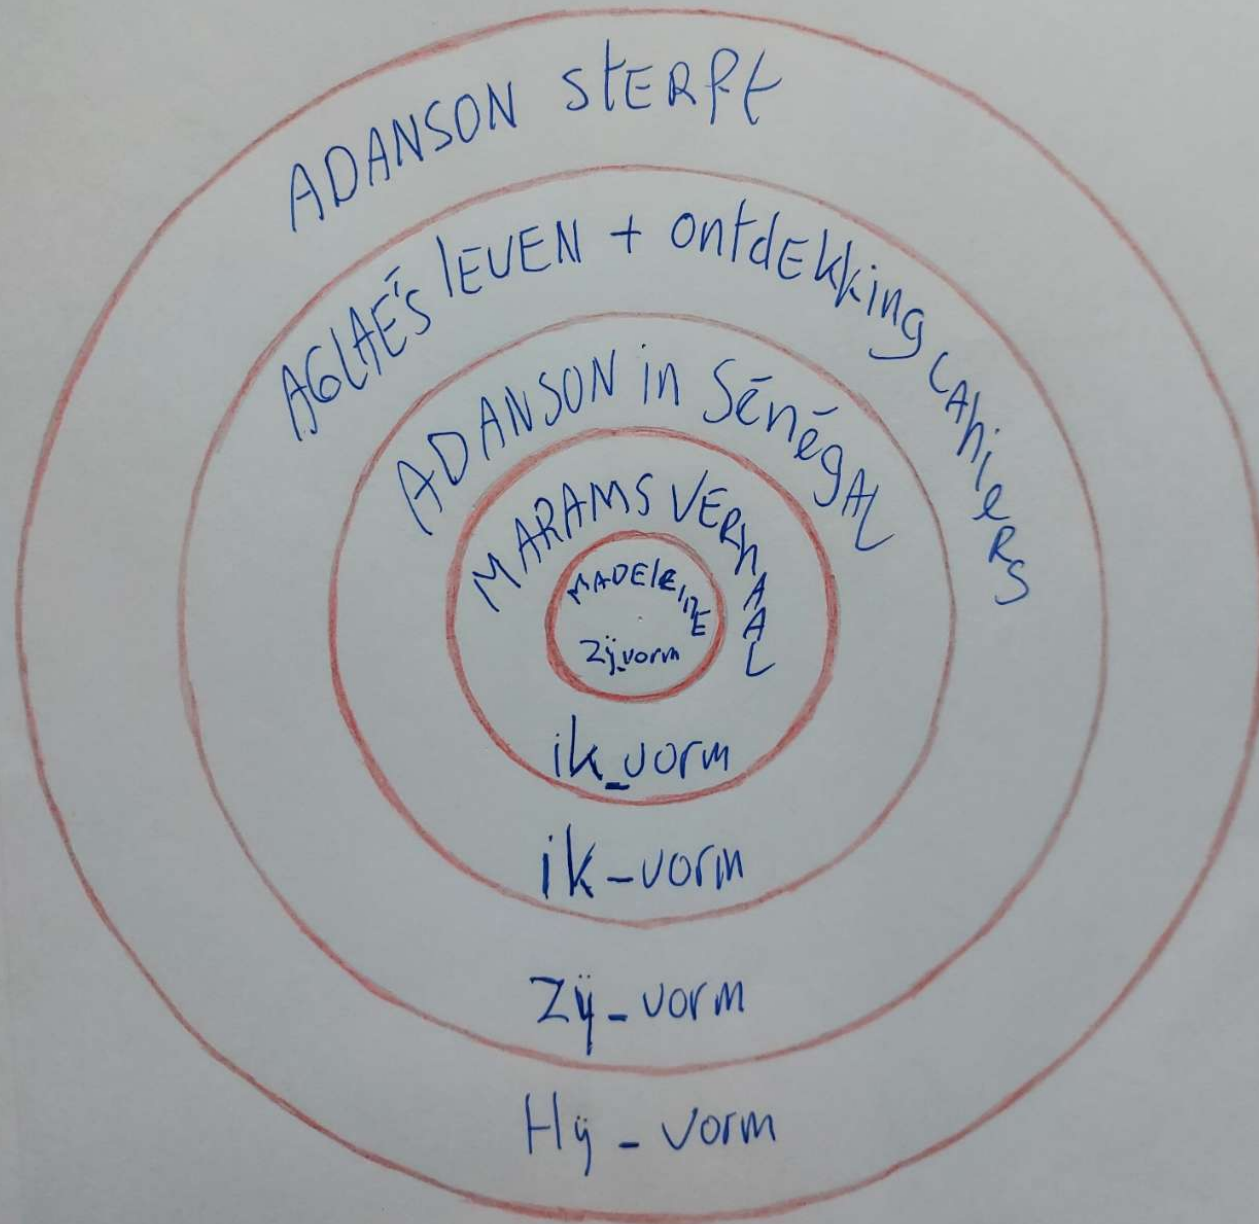 ADANSON StERft
AGLAÉ'S lEVEN + ontdEkking cAhieRS
ADANSON in SénégAL
MARAMS VERhAAL
MADEleinE
Zij_vorm
ik_vorm
ik-vorm
Zij-vorm
Hij-vorm